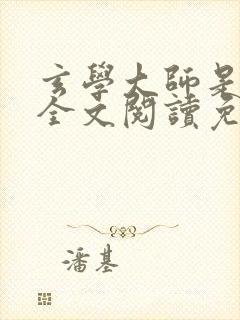 玄學大師是
全文閱讀免
潘基